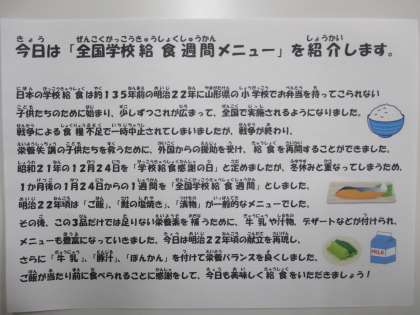 今日は「全国学校給食週間メニュー」を紹介します。
日本の学校給食は約135年前の明治22年に山形県の小学校でお弁当を持ってこられない
子供たちのために始まり、少しずつこれが広まって、全国で実施されるようになりました。
戦争による食糧不足で一時中止されてしまいましたが、戦争が終わり、
栄養失調の子供たちを救うために、外国からの援助を受け、給食を再開することができました。
昭和21年の12月24日を「学校給食感謝の日」と定めましたが、冬休みと重なってしまうため、
1か月後の1月24日からの1週間を「全国学校給食週間」としました。
明治22年頃は「ご飯」、「鮭の塩焼き」、「漬物」が一般的なメニューでした。
その後、この3品だけでは足りない栄養素を補うために、牛乳や汁物、デザートなどが付けられ、
メニューも豊富になっていきました。今日は明治22年頃の献立を再現し、
さらに「牛乳」、「豚汁」、「ぽんかん」を付けて栄養バランスを良くしました。
ご飯が当たり前に食べられることに感謝をして、今日も美味しく給食をいただきましょう!